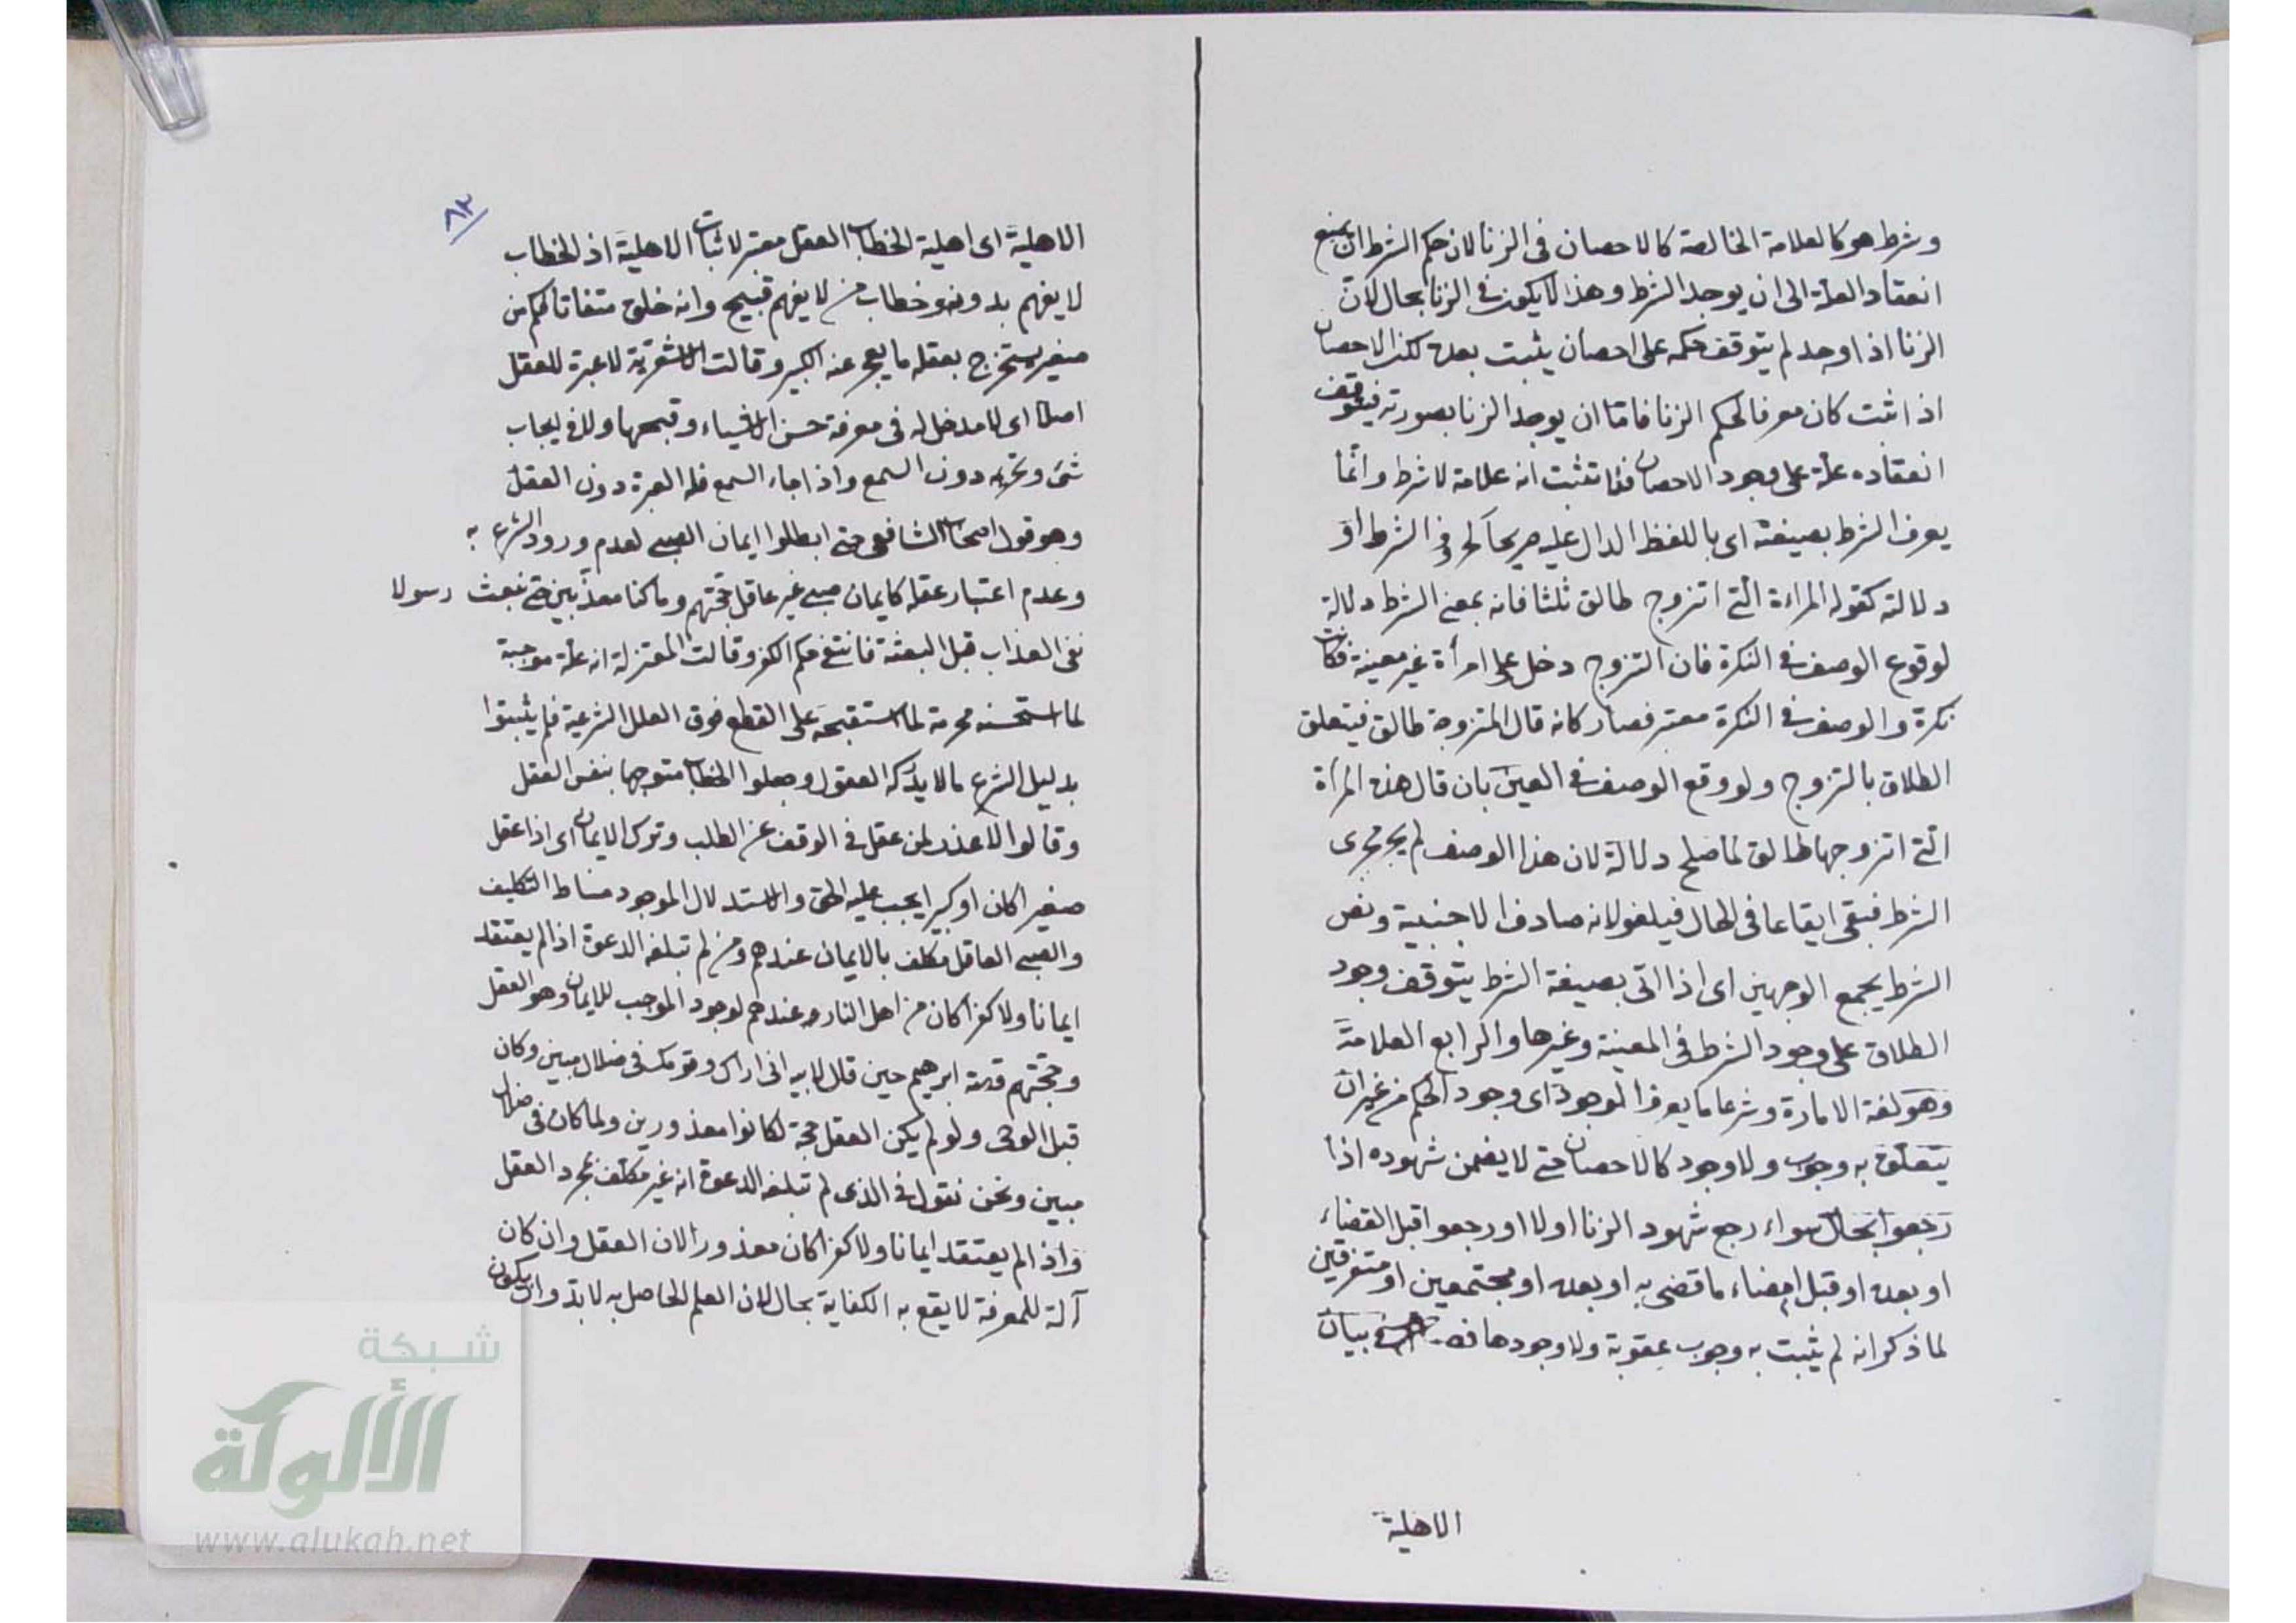 وشرط هو كالعلامة الخالصة كالاحصان فى الزنا لان حكم الشرط ان يمنع
انعقاد العلة الى ان يوجد الشرط وهذا لا يكون فى الزنا بحال لان
الزنا اذا وجد لم يتوقف حكمه على احصان يثبت بعده لكن الاحصان
اذا ثبت كان معرفا لحكم الزنا فاما ان يوجد الزنا بصورته فيتوقف
انعقاده علة على وجود الاحصان فلا تثبت انه علامة لا شرط وانما
يعرف الشرط بصيغته اى باللفظ الدال عليه صريحا كحروف الشرط او
دلالته كقوله المراءة التى اتزوج طالق ثلثا فانه بمعنى الشرط دلالة
لوقوع الوصف فى النكرة فان التزوج دخل على امرأة غير معينة فكانت
نكرة والوصف فى النكرة معتبر فصار كانه قال المتزوجة طالق فيتعلق
الطلاق بالتزوج ولو وقع الوصف فى العين بان قال هذه المرأة
التى اتزوجها طالق لما صلح دلالة لان هذا الوصف لم يجر مجرى
الشرط فبقى ايقاعا فى الحال فيلغو لانه صادف الاجنبية ونص
الشرط يجمع الوجهين اى اذا اتى بصيغة الشرط يتوقف وجود
الطلاق على وجود الشرط فى المعينة وغيرها والرابع العلامة
وهو لغة الامارة وشرعا ما يعرف الوجود اى وجود الحكم من غير ان
يتعلق به وجوب ولا وجود كالاحصان حتى لا يضمن شهوده اذا
رجعوا بحال سواء رجع شهود الزنا اولا او رجعوا قبل القضاء
او بعده او قبل امضاء ما قضى به او بعده او مجتمعين او متفرقين
لما ذكر انه لم يثبت به وجوب عقوبة ولا وجودها فصل فى بيان
الاهلية
٨٢
الاهلية اى اهلية الخطاب العقل معتبر لاثبات الاهلية اذ الخطاب
لا يفهم بدونه وخطاب من لا يفهم قبيح وانه خلق متفاتا فكم من
صغير يستخرج بعقله ما يعجز عنه الكبير وقالت الاشعرية لا عبرة للعقل
اصلا اى لا مدخل له فى معرفة حسن الاشياء وقبحها ولا فى ايجاب
شئ وتحريمه دون السمع واذا جاء السمع فله العبرة دون العقل
وهو قول اصحاب الشافعى حتى ابطلوا ايمان الصبى لعدم ورود الشرع به
وعدم اعتبار عقله كايمان صبى غير عاقل حجتهم وما كنا معذبين حتى نبعث رسولا
نفى العذاب قبل البعثة فانتفى حكم الكفر وقالت المعتزلة انه علة موجبة
لما استحسنه محرمة لما استقبحه على القطع فوق العلل الشرعية فلم يثبتوا
بدليل الشرع ما لا يدركه العقول وجعلوا الخطاب متوجها بنفس العقل
وقالوا لا عذر لمن عقل فى الوقف عن الطلب وترك الايمان اى اذا عقل
صغيرا كان او كبيرا يجب عليه الحق والاستدلال الموجود مناط التكليف
والصبى العاقل مكلف بالايمان عندهم ومن لم تبلغه الدعوة اذا لم يعتقد
ايمانا ولا كفرا كان من اهل النار عندهم لوجود الموجب للايمان وهو العقل
وحجتهم قصة ابرهيم حين قال لابيه انى اراك وقومك فى ضلال مبين وكان
قبل الوحى ولو لم يكن العقل حجة لكانوا معذورين ولما كان فى ضلال
مبين ونحن نقول فى الذى لم تبلغه الدعوة انه غير مكلف بمجرد العقل
واذا لم يعتقد ايمانا ولا كفرا كان معذورا لان العقل وان كان
آلة للمعرفة لا يقع به الكفاية بحال لان العلم الحاصل به لا بد وان يكون
شبكة
الألوكة
www.alukah.net